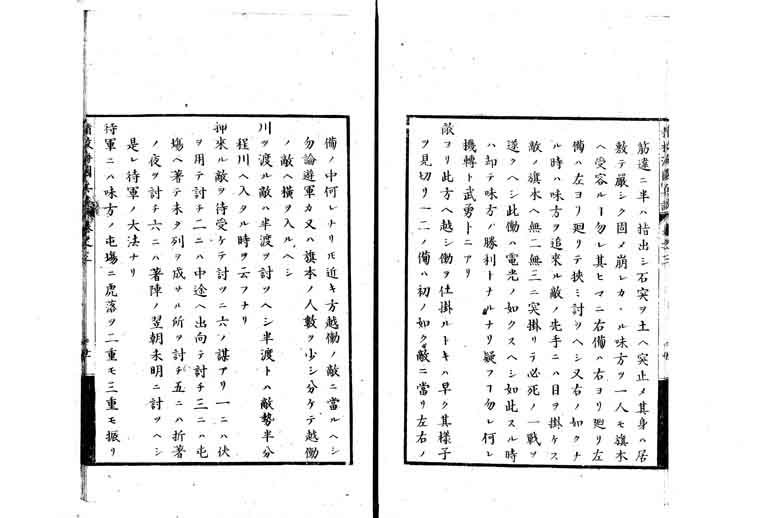 筋違ニ半ハ指出シ石突ヲ土ヘ突止メ其身ハ居
敷テ嚴シク固メ崩レカヽル味方ヲ一人モ旗本
ヘ受容ルヿ勿レ其ヒマニ右備ハ右ヨリ廻リ左
備ハ左ヨリ廻リテ挾ミ討ツヘシ又右ノ如クナ
ル時ハ味方ヲ追來ル敵ノ先手ニハ目ヲ掛ケス
敵ノ旗本ヘ無二無三ニ突掛リテ必死ノ一戰ヲ
遂クヘシ此働ハ電光ノ如クスヘシ如此スル時
ハ却テ味方ノ勝利トナルナリ疑フヿ勿レ何レ
機轉ト武勇トニアリ
敵ヨリ此方ヘ越シ働ヲ仕掛ルトキハ早ク其様子
ヲ見切リ一二ノ備ハ初ノ如ク敵ニ當リ左右ノ
備ノ中何レナリモ近キ方越働ノ敵ニ當ルヘシ
勿論遊軍カ又ハ旗本ノ人數ヲ少シ分ケテ越働
ノ敵ヘ横ヲ入ルヘシ
川ヲ渡ル敵ハ半渡ヲ討ツヘシ半渡トハ敵勢半分
程川ヘ入タル時ヲ云フナリ
押來ル敵ヲ待受ケテ討ツニ六ノ謀アリ一ニハ伏
ヲ用テ討チ二ニハ中途ヘ出向テ討チ三ニハ屯
塲ヘ著テ未タ列ヲ成サル所ヲ討チ五ニハ折著
ノ夜ヲ討チ六ニハ著陣ノ翌朝未明ニ討ツヘシ
是レ待軍ノ大法ナリ
待軍ニハ味方ノ屯塲ニ虎落ヲ二重モ三重モ振リ